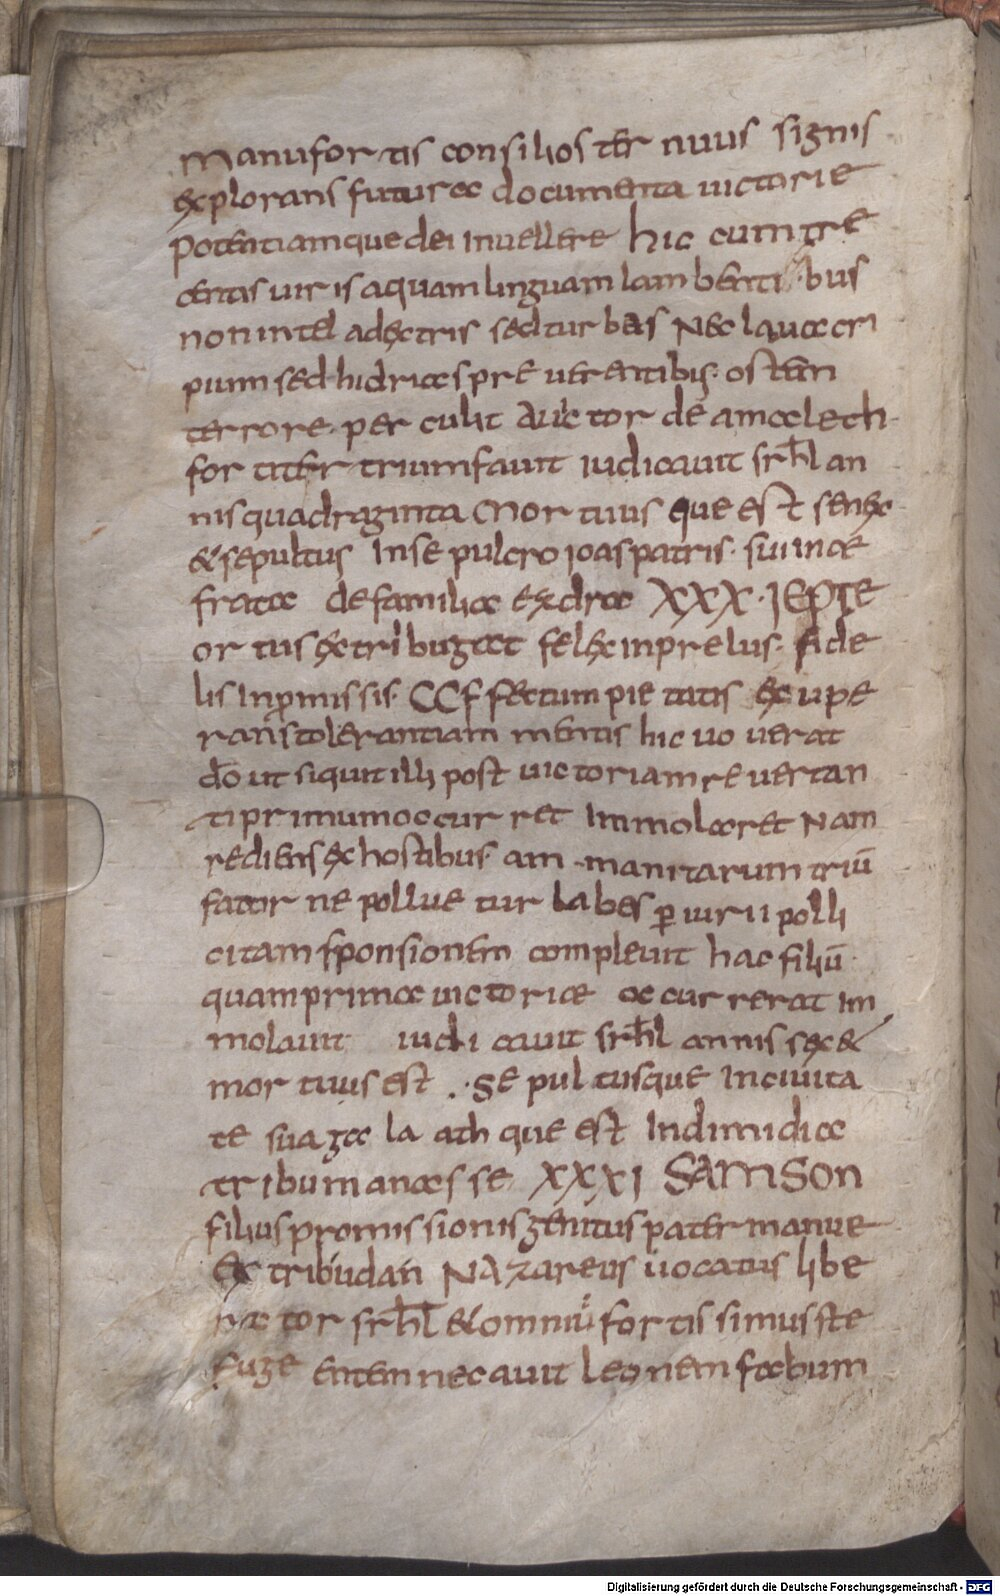 manu fortis consilio ster nuus signis
explorans future documenta uictorie
potentiamque dei inuellere hic cum tre
centis uiris aquam linguam lambentibus
non intel adextris sed turbeis Nec lauacri
pium sed hidrias pre uerentibis. osten
terrore. per culit Auctor de amalech.
fortiter triumfauit iudicauit srhl an
nis quadraginta Mortuus que est senex
& sepultus In sepulcro ioas patris. sui in ae
frata de familia exdra XXX. IEPTE
ortus ex tribu gat felex in prelus. fide
lis in pmissis. Affectum pietatis exupe
rans tolerantiam mentis hic uouerat
do ut siquit illi post uictoriam reuertan
ti primum occurret Immolaret Nam
rediens ex hostibus am manitarum triu
fator ne pollue tur labes p iurii polli
citam sponsionem compleuit hac filiu
quam prima uictoriae occurrerat im
molauit iudicauit srhl annis sex &
mortuus est .. Sepultusque In ciuita
te sua galaath que est In dimidia
tribu manasse XXXI SAMSON
filius promissionis genitus pater manue
Ex tribu dan NAzareus uocatus libe
rator srhl & omniu fortissimus ste
Fuge entem necauit Leonem fabum